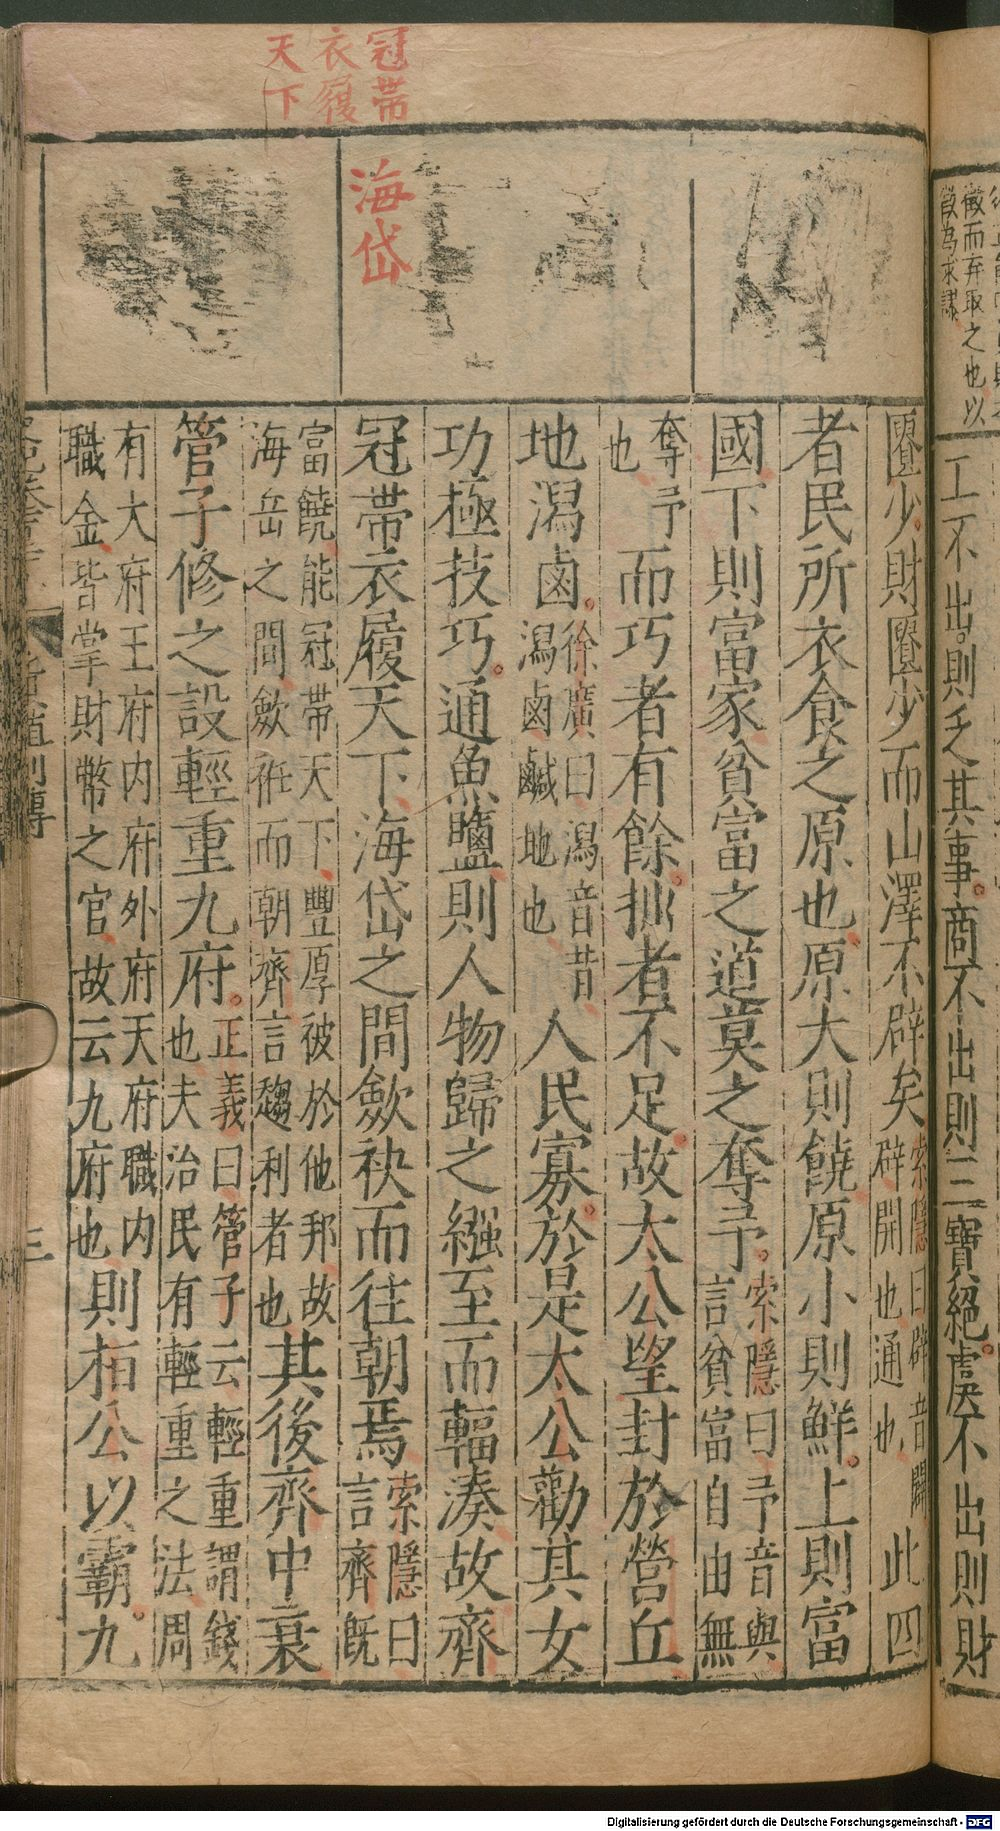 冠帶
衣履
天下
海岱
匱少財匱少而山澤不辟矣索隱曰辟音闢辟開也通也此四
者民所衣食之原也原大則饒原小則鮮上則富
國下則富家貧富之道莫之奪予索隱曰予音與言貧富自由無
奪予也而巧者有餘拙者不足故太公望封於營丘
地潟鹵徐廣曰潟音昔潟鹵鹹地也人民寡於是太公勸其女
功極技巧通魚鹽則人物歸之繦至而輻湊故齊
冠帶衣履天下海岱之間歛袂而往朝焉索隱曰言齊既
富饒能冠帶天下豐厚被於他邦故海岳之間歛袵而朝齊言趨利者也其後齊中衰
管子修之設輕重九府正義曰管子云輕重謂錢也夫治民有輕重之法周
有大府王府內府外府天府職內職金皆掌財幣之官故云九府也則桓公以霸九
三
徵而弃取之也以
工不出則乏其事商不出則三寶絕虞不出則財
Digitalisierung gefördert durch die Deutsche Forschungsgemeinschaft - DFG